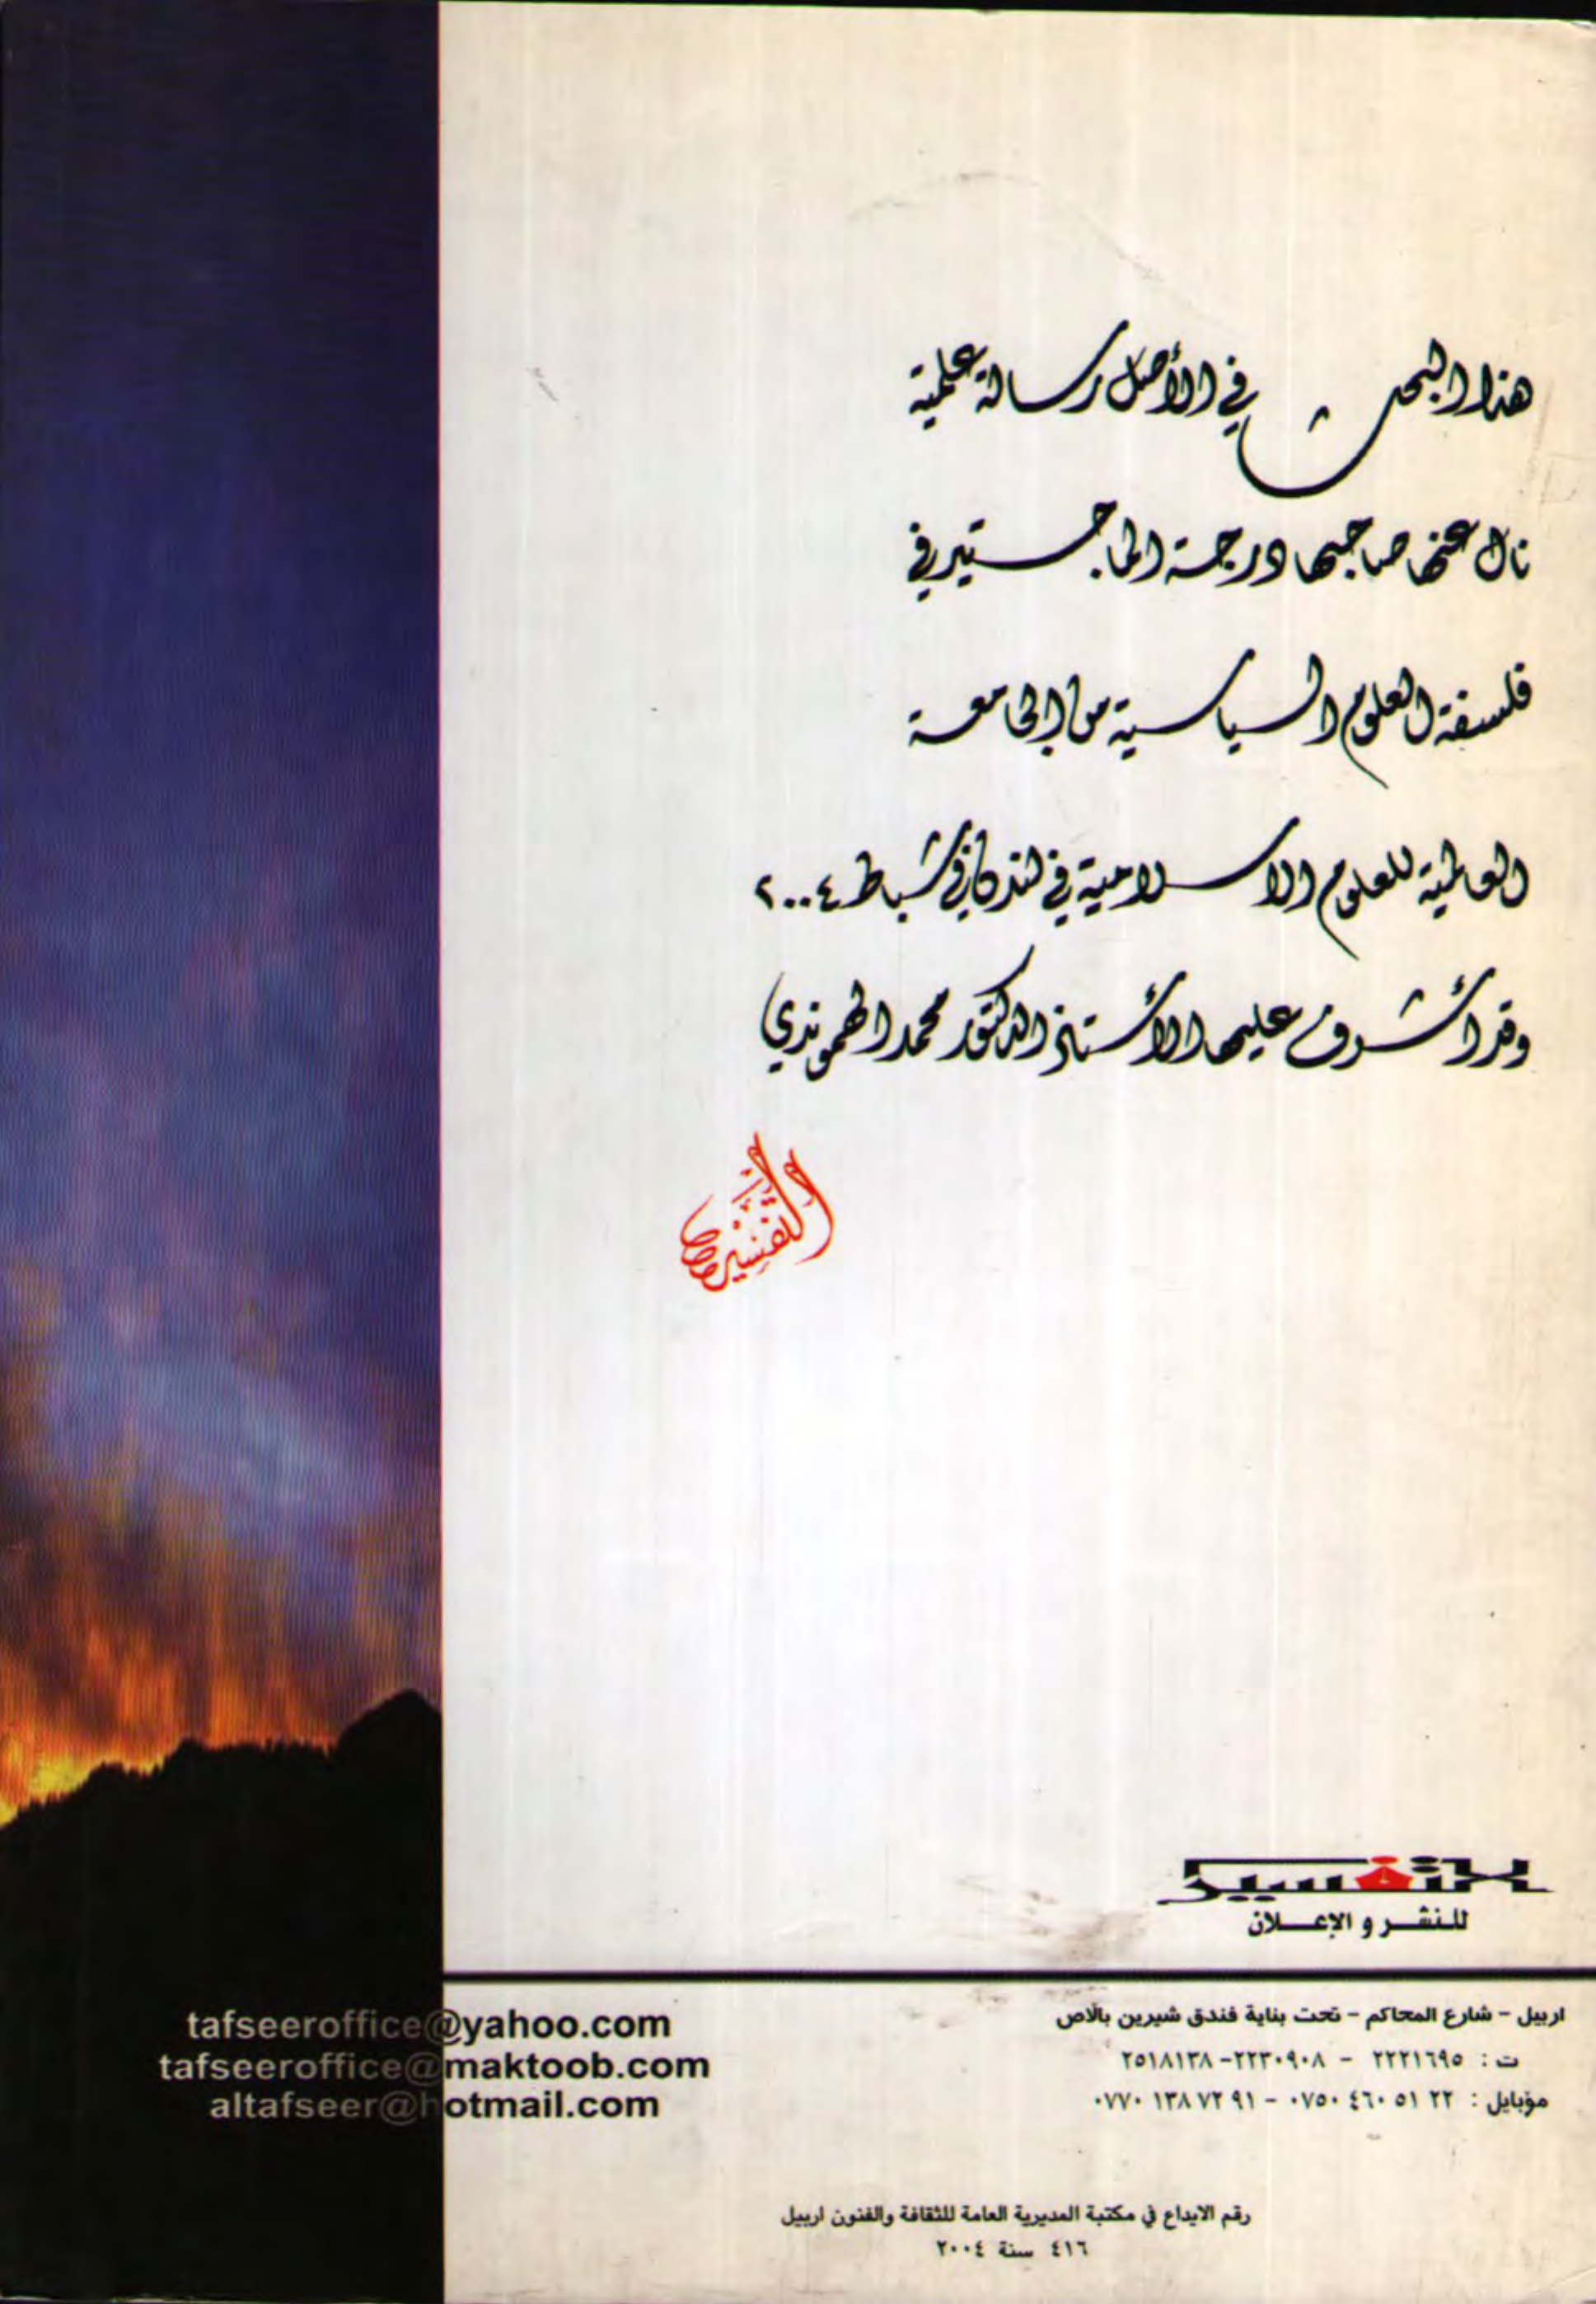 هذا البحث في الأصل رسالة علمية
نال عنها صاحبها درجة الماجستير في
فلسفة العلوم السياسية من الجامعة
العالمية للعلوم الاسلامية في لندن في شباط ٢٠٠٤
وقد أشرف عليها الأستاذ الدكتور محمد الهموندي
التفسير
التفسير
للنشر و الإعلان
اربيل - شارع المحاكم - تحت بناية فندق شيرين بالاص
ت : ٢٢٢١٦٩٥ - ٢٢٣٠٩٠٨-٢٥١٨١٣٨
موبايل : ٢٢ ٥١ ٤٦٠ ٠٧٥٠ - ٩١ ٧٢ ١٣٨ ٠٧٧٠
tafseeroffice@yahoo.com
tafseeroffice@maktoob.com
altafseer@hotmail.com
رقم الايداع في مكتبة المديرية العامة للثقافة والفنون اربيل
٤١٦ سنة ٢٠٠٤